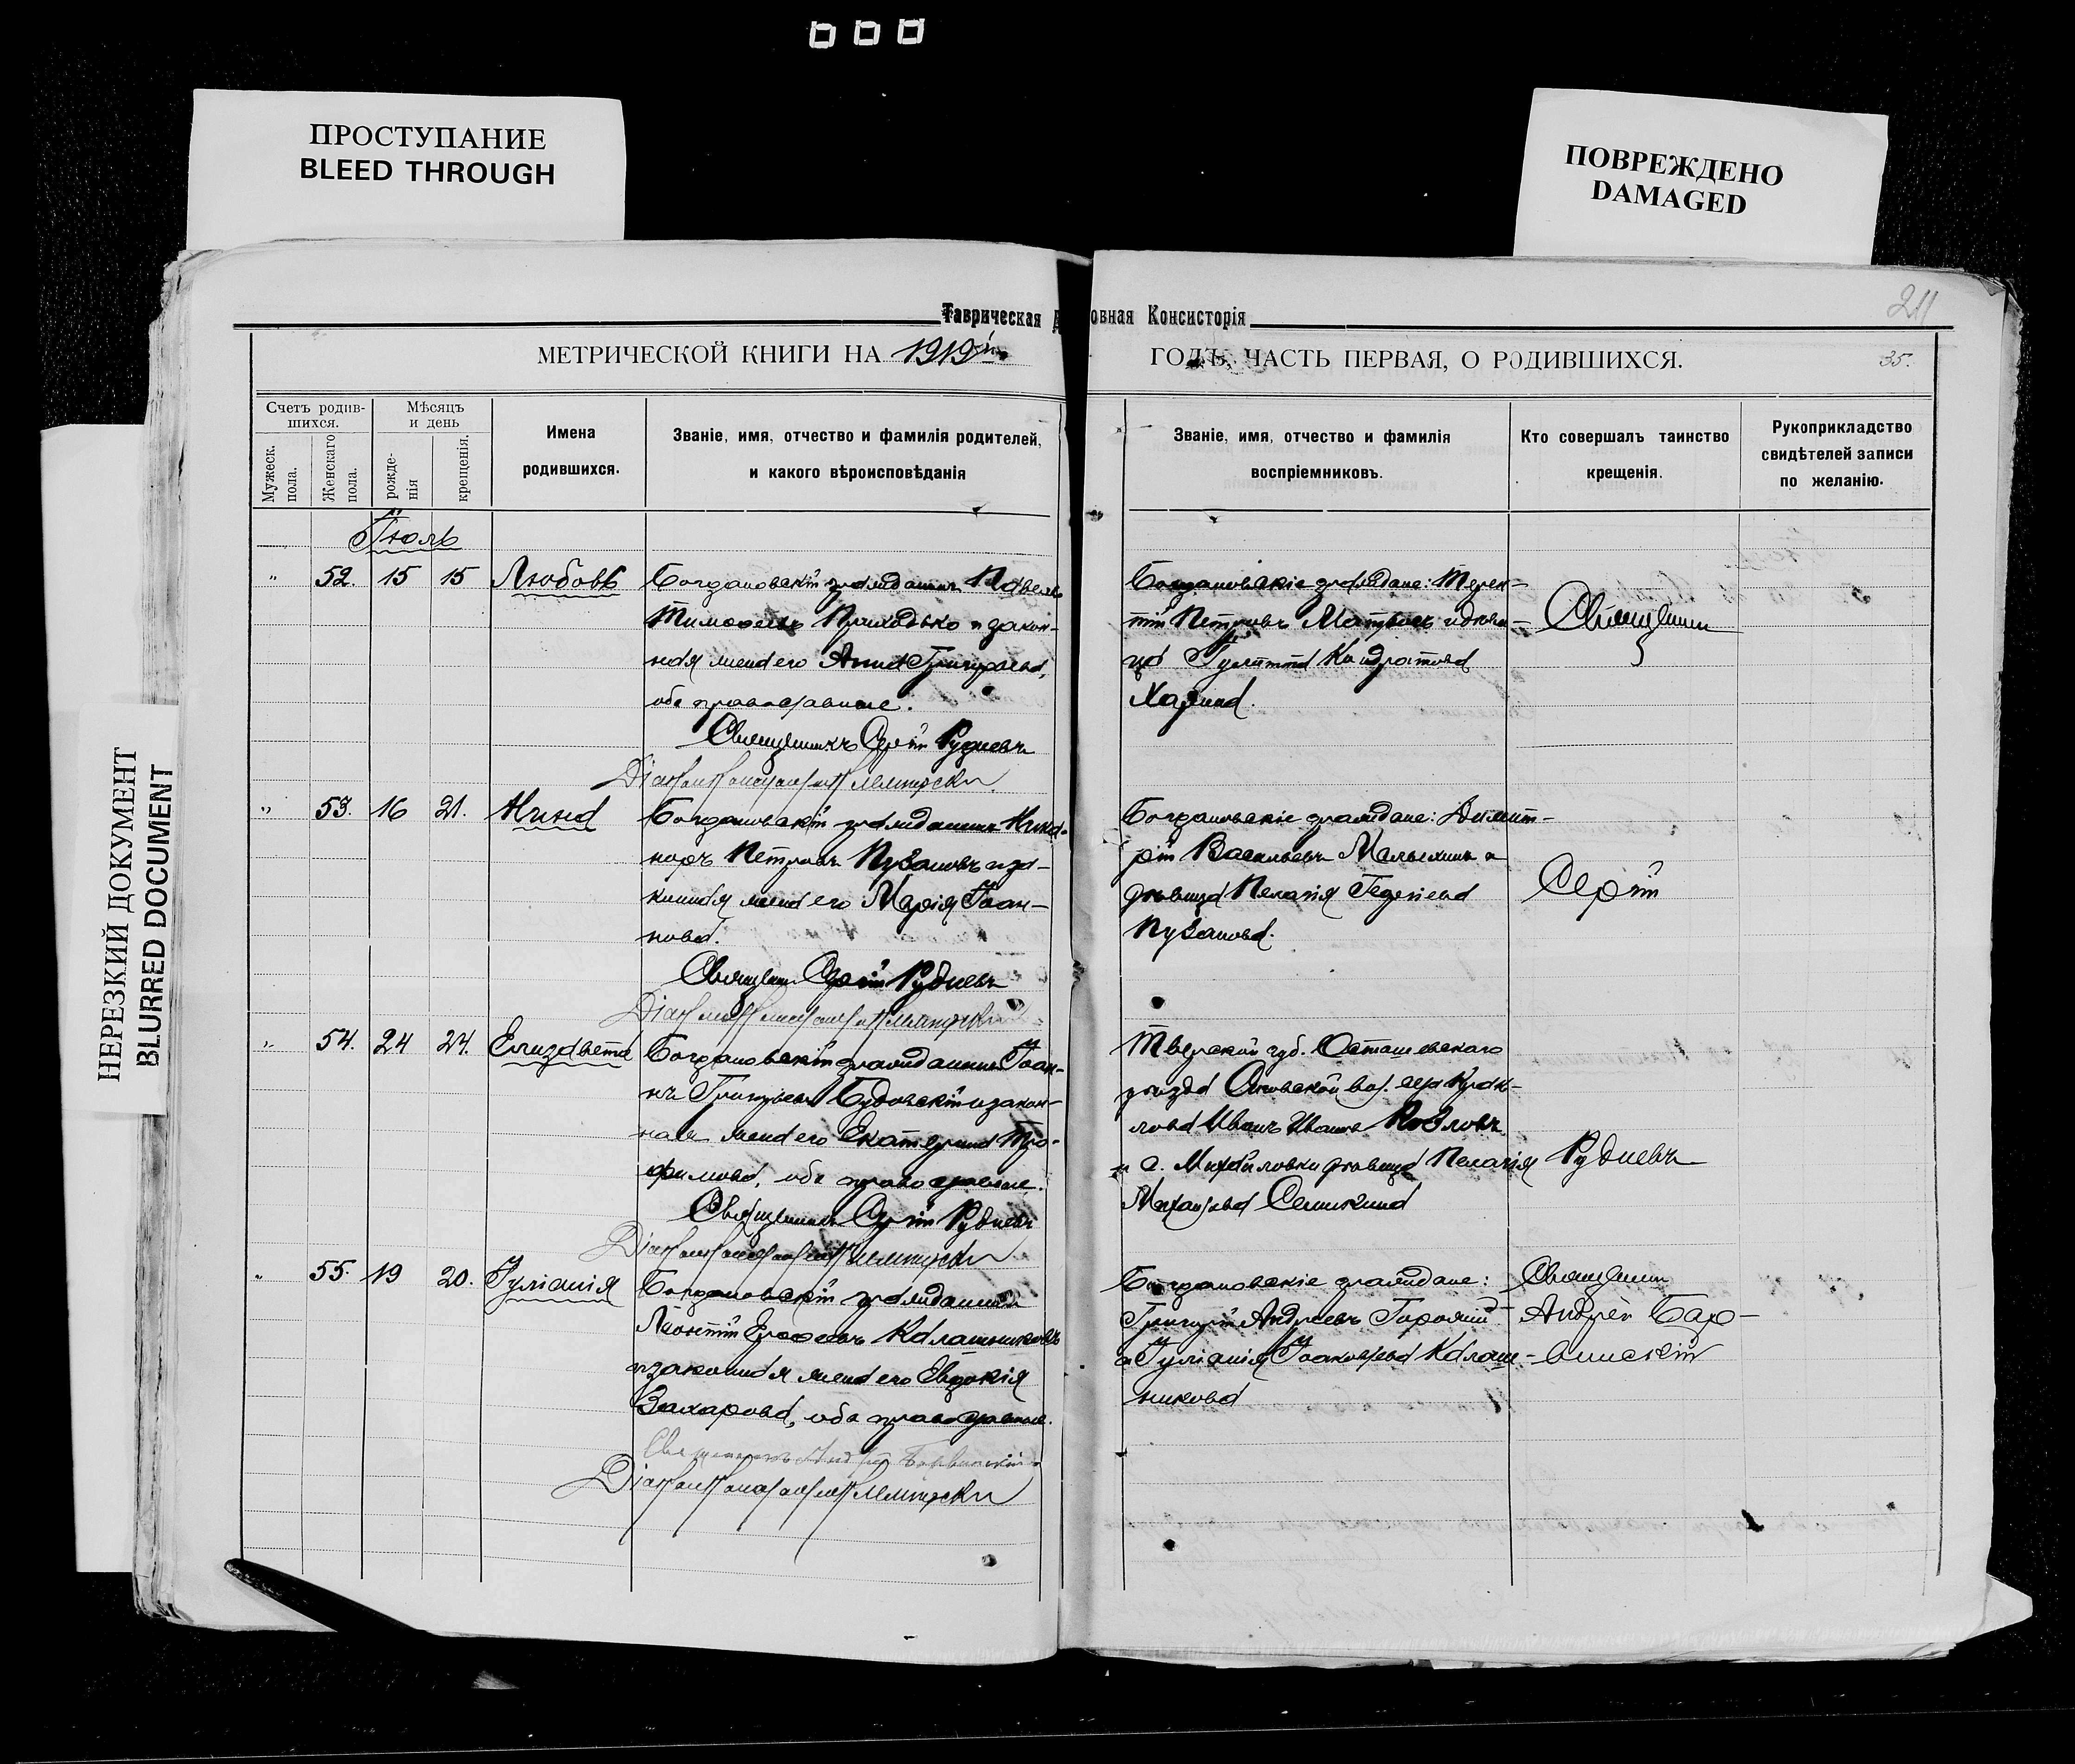 ПРОСТУПАНИЕ
BLEED THROUGH
ПОВРЕЖДЕНО
DAMAGED
НЕРЕЗКИЙ ДОКУМЕНТ
BLURRED DOCUMENT
Таврическая Д
овная Консисторія
211
МЕТРИЧЕСКОЙ КНИГИ НА 1919й
ГОДЪ, ЧАСТЬ ПЕРВАЯ, О РОДИВШИХСЯ.
35.
Счетъ родив-
шихся.
Мужеск. пола.
Женскаго пола.
Мѣсяцъ
и день
рожде-
нія
крещенія.
Имена
родившихся.
Званіе, имя, отчество и фамилія родителей,
и какого вѣроисповѣданія
Званіе, имя, отчество и фамилія
воспріемниковъ.
Кто совершалъ таинство
крещенія.
Рукоприкладство
свидѣтелей записи
по желанію.
Іюль
" 52. 15 15 Любовь
Богдановскій гражданинъ Павелъ
Тимофеевъ Приходько и закон-
ная жена его Анна Григорьева,
оба православные.
Священникъ Сергій Рудневъ
Богдановскіе граждане: Терен-
тій Петровъ и
Кондратова
Священник
" 53. 16 21. Нина
Богдановскій гражданинъ Ника-
норъ Петровъ Пузановъ и за-
конная жена его Марія Іоан-
нова.
Священник Сергій Рудневъ
Богдановскіе граждане: Димит-
рій Васильевъ и
дѣвица Пелагія
Пузанова.
Сергій
" 54. 24 24. Елизавета
Богдановскій гражданинъ Іоан-
нъ Григорьевъ и закон-
ная жена его Екатерина Тро-
фимова, оба православные.
Священникъ Сергій Рудневъ
Тверской губ. Осташевскаго
уѣзда вол. села
Иванъ Ивановъ Козловъ
и с. Михайловки дѣвица Пелагія
Михайлова
Рудневъ
" 55. 19 20. Іуліанія
Богдановскій гражданинъ
Леонтій Ерофеевъ Калашниковъ
и законная жена его Евдокія
Захарова, оба православные.
Священникъ Андрей Барвинскій
Богдановскіе граждане:
Григорій Андреевъ
и Іуліанія Іоаковлева Калаш-
никова
Священник
Андрей Бар-
винскій